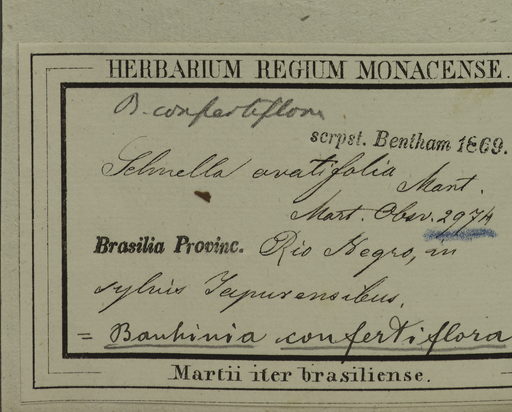 HERBARIUM REGIUM MONACENSE.
B. confertiflora.
scrpst. Bentham 1869.
Schnella ovatifolia Mart.
Mart. Obsv. 2974
Brasilia Provinc. Rio Negro, in
sylvis Japurensibus.
= Bauhinia confertiflora
Martii iter brasiliense.